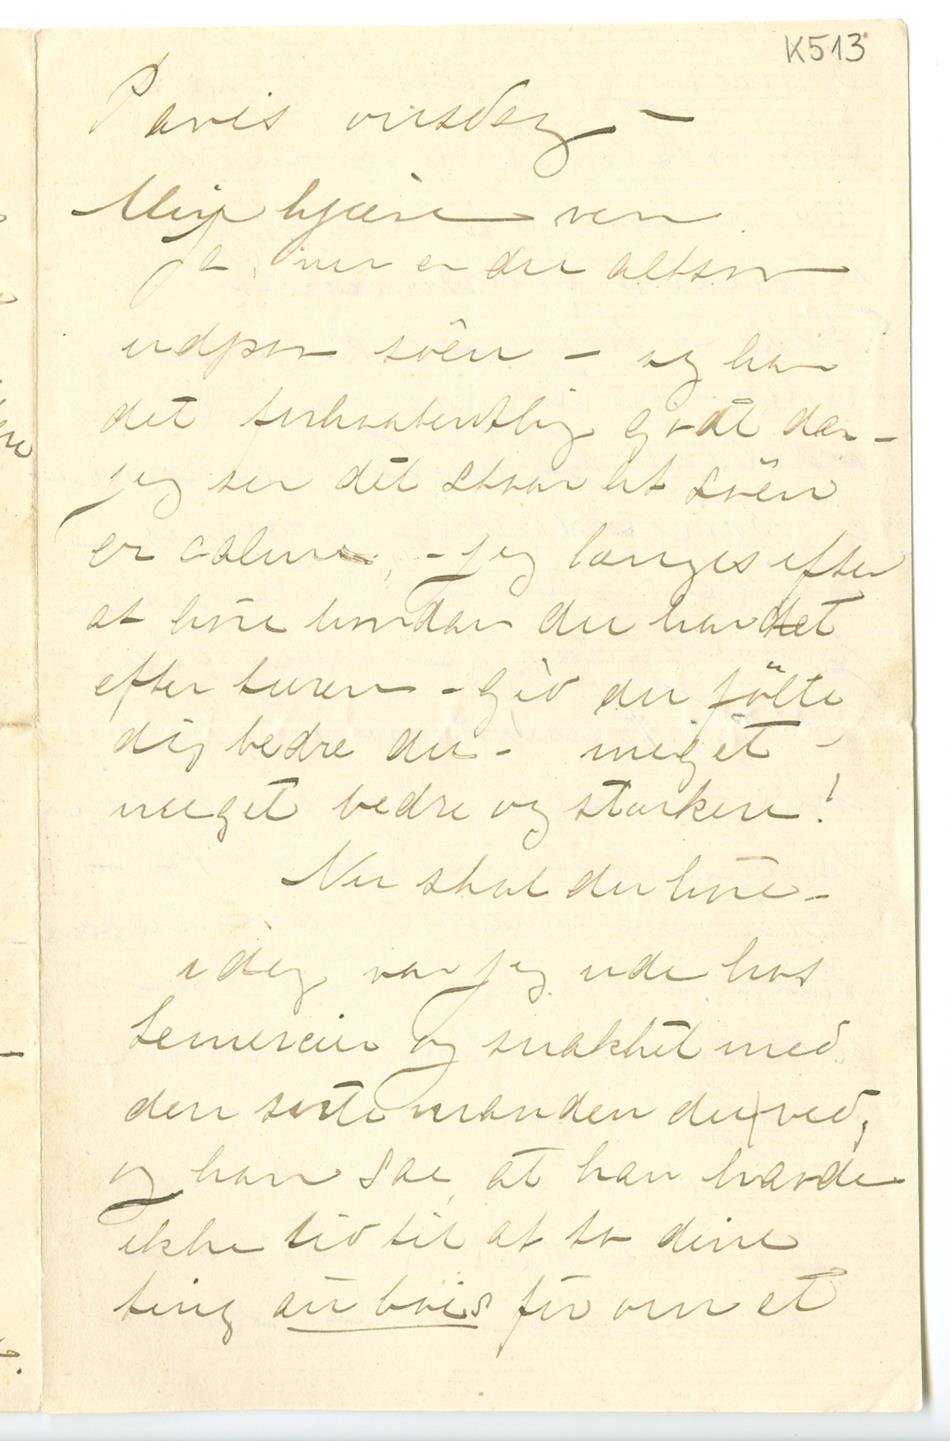 K513
Paris onsdag –
Min kjære ven
Ja, nu er du altsaa
udpaa söen – og har
det forhaabentlig godt der –
jeg ser det staar at söen
er calme, – jeg længes efter
at höre hvordan du har det
efter turen – Gid du fölte
dig bedre du – meget –
meget bedre og stærkere!
Nu skal du höre –
idag var jeg ude hos
Lemercier og snakket med
den sorte manden du ved,
og han sae, at han havde
ikke tid til at ta dine
ting au bois för om et